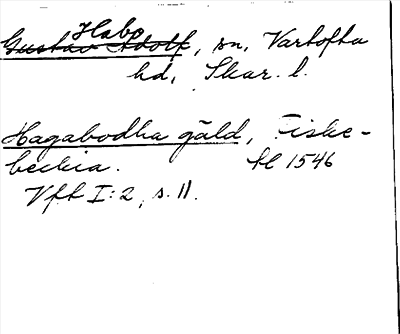 Habo
Gustav Adolf, sn, Vartofta
hd, Skar. l.
Hagabodha gäld, Fiske-
beckia. hl 1546
Vft I:2, s. 11.